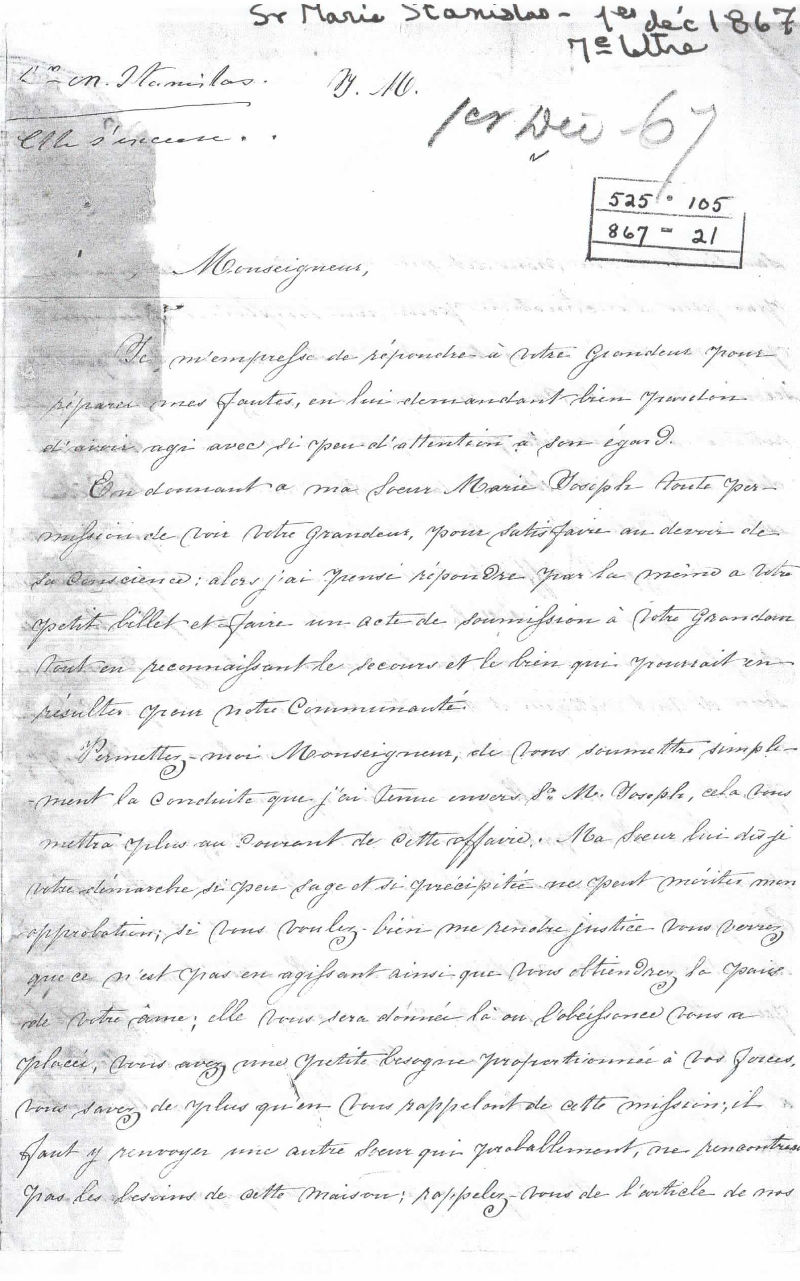 Sr Marie Stanislas - 1er déc 1867
7e lettre
Sr M. Stanislas.
J. M.
Elle s'excuse.
1er Déc - 67
525 • 105
867 - 21
Monseigneur,
Je m'empresse de répondre à Votre Grandeur pour
réparer mes fautes, en lui demandant bien pardon
d'avoir agi avec si peu d'attention à son égard.
En donnant a ma Soeur Marie Joseph toute per-
mission de voir Votre Grandeur, pour satisfaire au devoir de
sa conscience; alors j'ai pensé répondre par la même a votre
petit billet et faire un acte de soumission à Votre Grandeur
tout en reconnaissant le secours et le bien qui pourrait en
résulter pour notre Communauté.
Permettez-moi Monseigneur, de vous soumettre simple-
-ment la conduite que j'ai tenue envers Sr M. Joseph, cela vous
mettra plus au courant de cette affaire. Ma Soeur lui dis-je
votre démarche si peu sage et si précipitée ne peut mériter mon
approbation; si vous voulez-bien me rendre justice vous verrez
que ce n'est pas en agissant ainsi que vous obtiendrez la paix
de votre âme; elle vous sera donnée là ou l'obéissance vous a
placée, vous avez une petite besogne proportionnée à vos forces,
vous savez de plus qu'en vous rappelant de cette mission; il
faut y renvoyer une autre Soeur qui probablement, ne rencontrera
pas les besoins de cette maison; rappelez-vous de l'article de nos